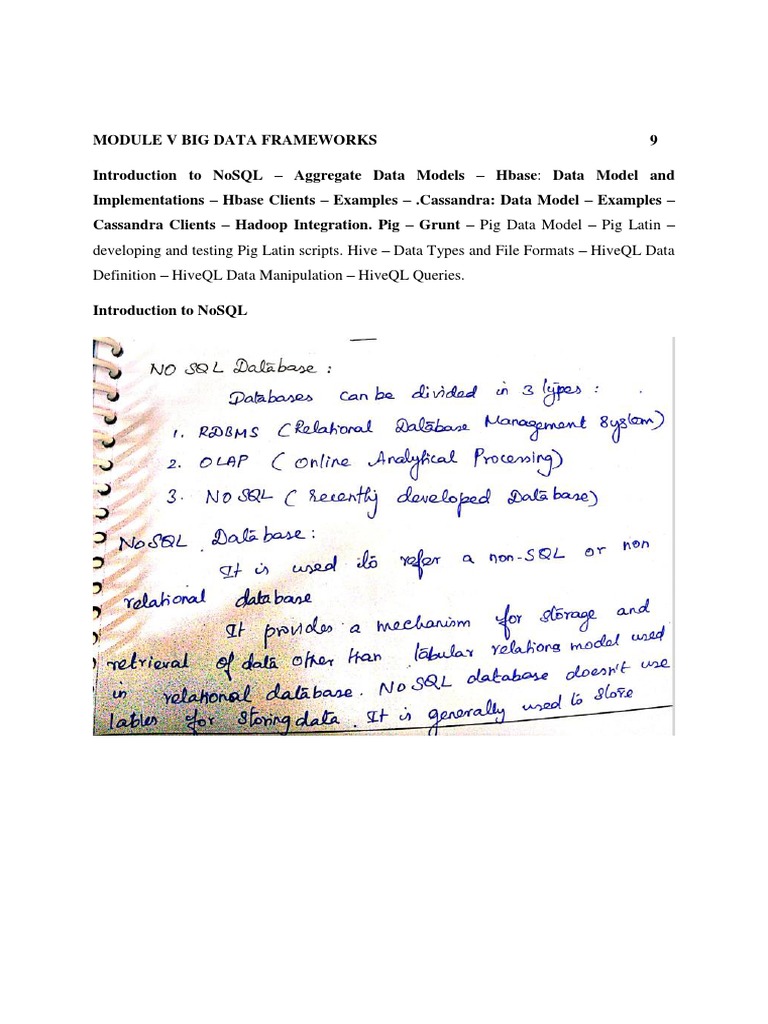 MODULE V BIG DATA FRAMEWORKS 9
Introduction to NoSQL – Aggregate Data Models – Hbase: Data Model and
Implementations – Hbase Clients – Examples – .Cassandra: Data Model – Examples –
Cassandra Clients – Hadoop Integration. Pig – Grunt – Pig Data Model – Pig Latin –
developing and testing Pig Latin scripts. Hive – Data Types and File Formats – HiveQL Data
Definition – HiveQL Data Manipulation – HiveQL Queries.
Introduction to NoSQL
NO SQL Database :
Databases can be divided in 3 types :
1. RDBMS (Relational Database Management System)
2. OLAP (Online Analytical Processing)
3. NO SQL (recently developed Database)
NoSQL Database :
It is used to refer a non-SQL or non
relational database
It provides a mechanism for storage and
retrieval of data other than tabular relations model used
in relational database. NO SQL database doesn't use
tables for storing data. It is generally used to store